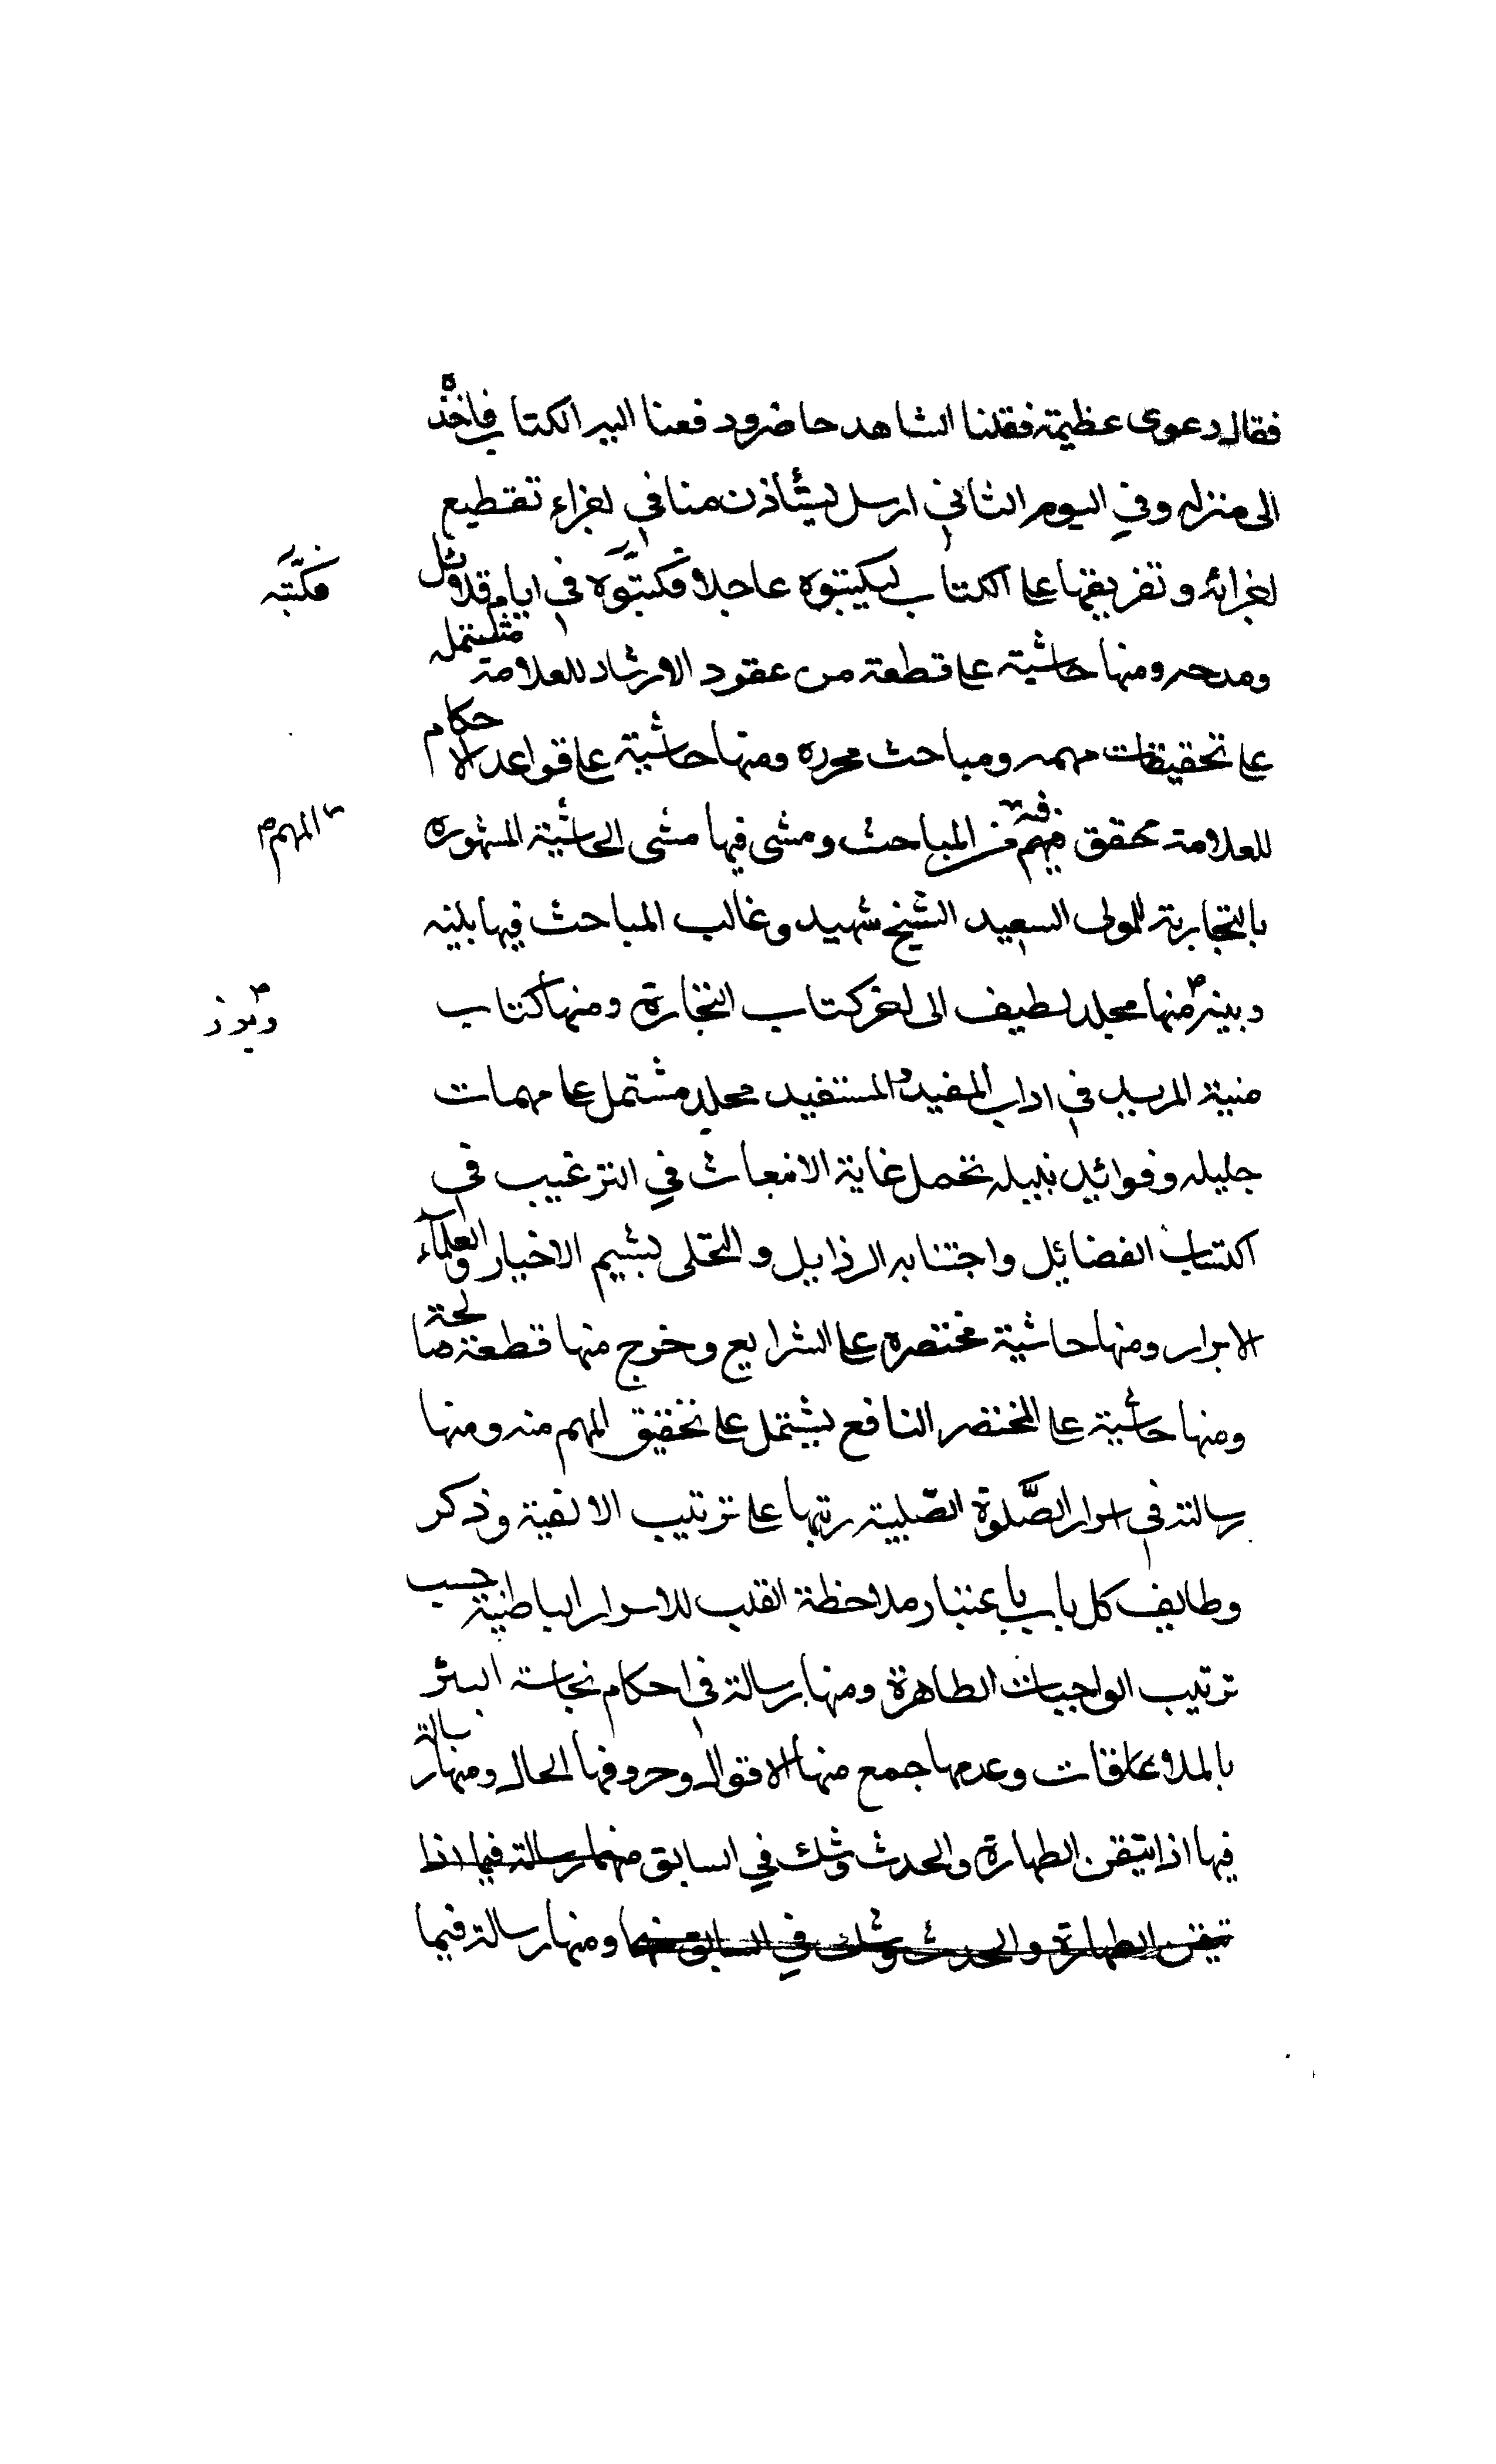 فقال دعوى عظيمة فقلنا الشاهد حاضر ودفعنا اليه الكتاب فاخذه
الى منزله وفي اليوم الثاني ارسل ليستأذن منا في اجزاء تقطيع
اجزائه وتفريقها على الكتاب ليكتبوه عاجلا فكتبوه في ايام قلائل
ومدحه ومنها حاشية على قطعة من عقود الارشاد للعلامة مشتمله
على تحقيقات مهمه ومباحث محرره ومنها حاشية على قواعد الاحكام
للعلامة محقق فيهم فيه من المباحث ومشى فيها مشى الحاشية المشهوره
بالنجارية للمولى السعيد الشيخ شهيد وغالب المباحث فيها بلينه
وبينه منها مجلد لطيف الى اخر كتاب التجارة ومنها كتاب
منية المريد في اداب المفيد والمستفيد مجلد مشتمل على مهمات
جليله وفوائد نبيله تحمل غاية الانبعاث في الترغيب في
اكتساب الفضائل واجتنابه الرذايل والتحلى بشيم الاخيار والعلمآء
الابرار ومنها حاشية مختصره على الشرايع وخرج منها قطعة صالحة
ومنها حاشية على المختصر النافع يشتمل على تحقيق المهم منه ومنها
رسالته في اسرار الصلوة القلبية رتبها على ترتيب الالفية وذكر
وظايف كل باب باعتبار ملاحظة القلب للاسرار الباطنية حسب
ترتيب الواجبات الظاهرة ومنها رسالة في احكام نجاسة البئر
بالملاقات وعدمها جمع منها الاقوال وحرر فيها الحال ومنها رسالة
فيها اذا تيقن الطهارة والحدث وشك في السابق منهما رسالته فيما اذا
تيقن الطهارة والحدث وشك في السابق منهما ومنها رسالة فيما
فكتبه
المهم